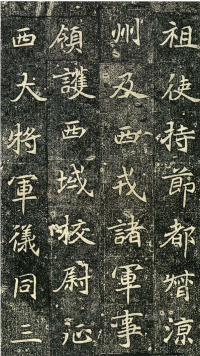 祖使持節都督涼
州及西戎諸軍事
領護西域校尉征
西大將軍儀同三